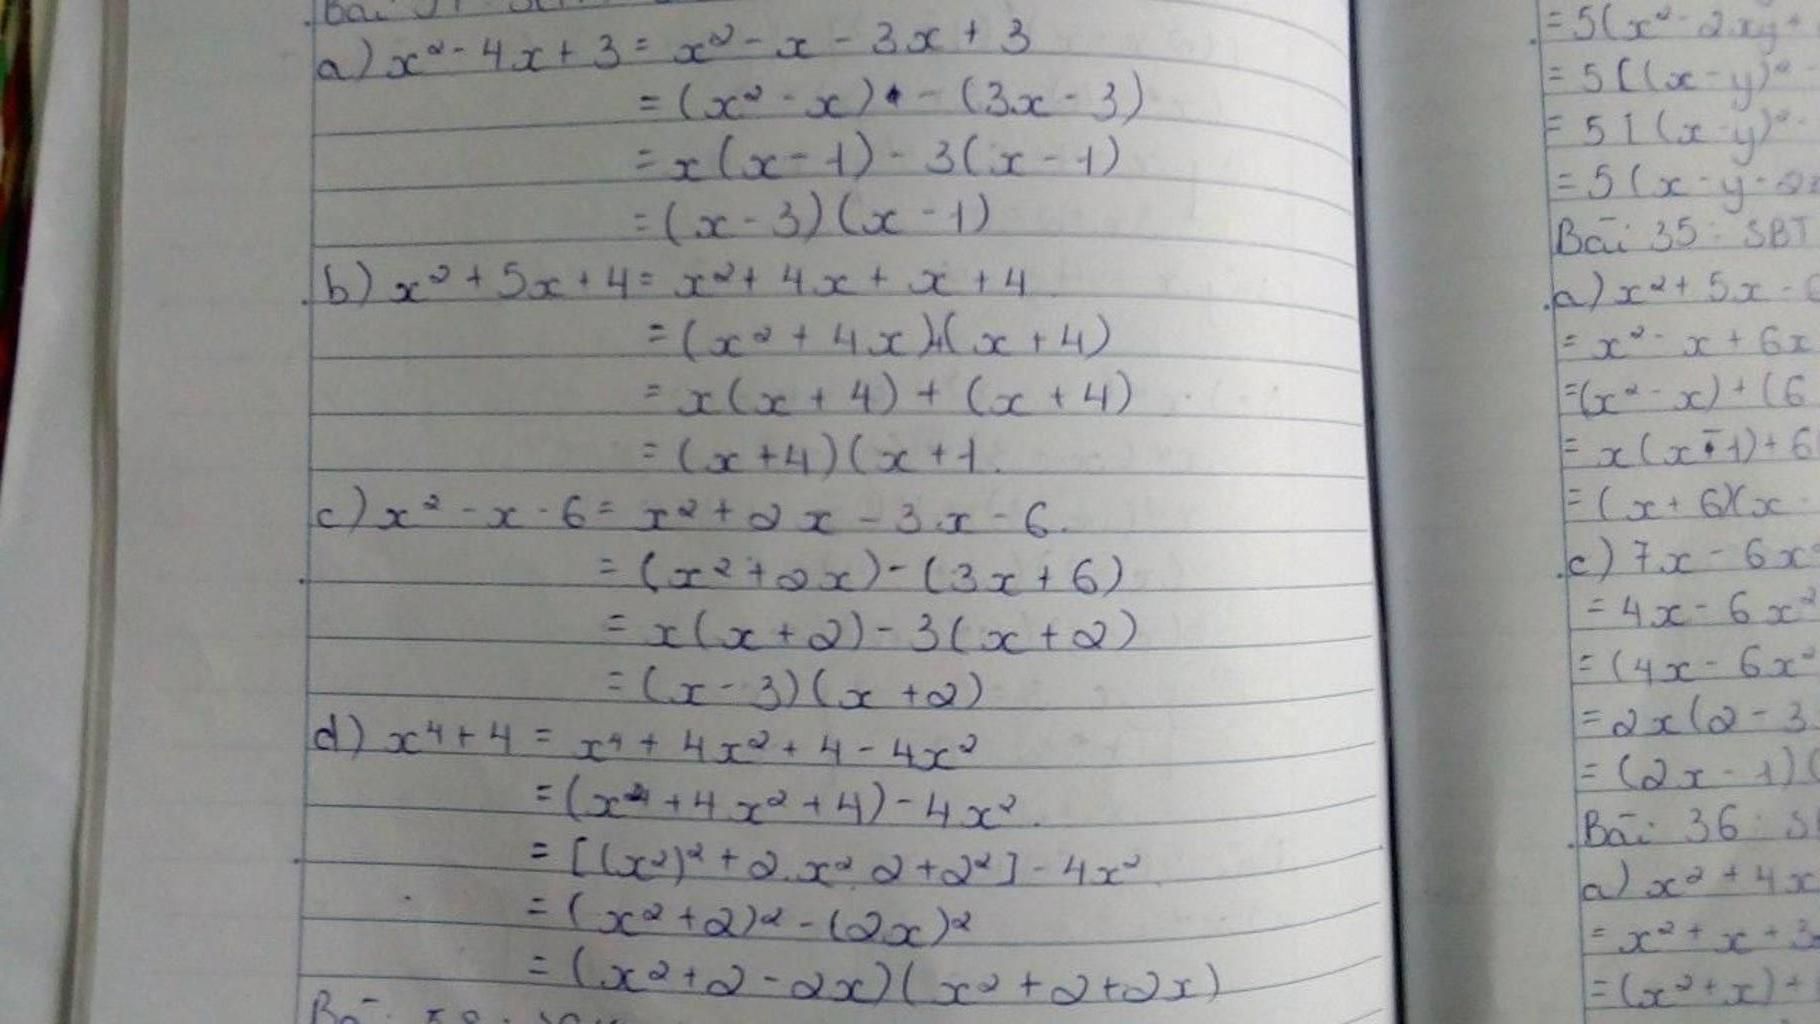 a) x² - 4x + 3 = x² - x - 3x + 3
= (x² - x) - (3x - 3)
= x(x - 1) - 3(x - 1)
= (x - 3)(x - 1)
b) x² + 5x + 4 = x² + 4x + x + 4
= (x² + 4x)+(x + 4)
= x(x + 4) + (x + 4)
= (x + 4)(x + 1.
c) x² - x - 6 = x² + 2x - 3x - 6.
= (x² + 2x) - (3x + 6)
= x(x + 2) - 3(x + 2)
= (x - 3)(x + 2)
d) x⁴ + 4 = x⁴ + 4x² + 4 - 4x²
= (x⁴ + 4x² + 4) - 4x².
= [(x²)² + 2.x².2 + 2²] - 4x²
= (x² + 2)² - (2x)²
= (x² + 2 - 2x)(x² + 2 + 2x)
= 5(x² - 2xy +
= 5[(x - y)² -
= 5[(x - y)² -
= 5(x - y - 2z
Bài 35: SBT
a) x² + 5x -
= x² - x + 6x
=(x² - x) + (6
= x(x - 1) + 6
= (x + 6)(x -
c) 7x - 6x²
= 4x - 6x²
= (4x - 6x²
= 2x(2 - 3
= (2x - 1)(
Bài 36: S
a) x² + 4x
= x² + x + 3
= (x² + x) +